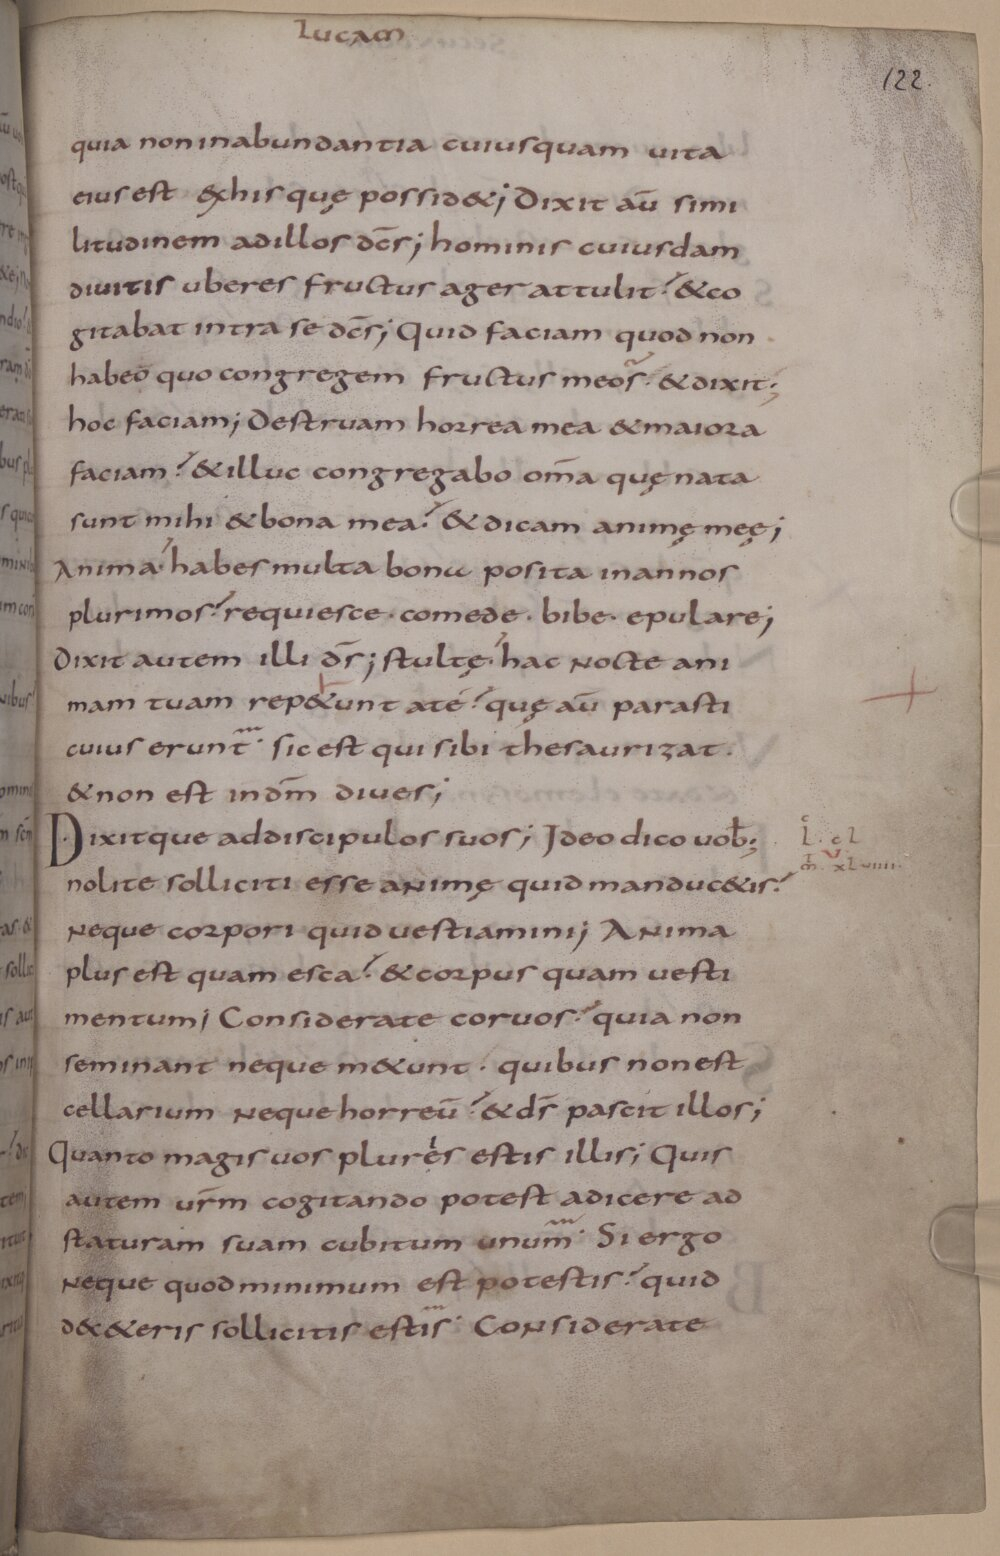 Lucam
122.
quia non inabundantia cuiusquam vita
eius est &xhis quę possid&; Dixit aū simi
litudinem adillos dc̄s; hominis cuiusdam
divitis uberes fructus ager attulit? &co
gitabat intra se dc̄s; Quid faciam quod non
habeo quo congregem fructus meos? &dixit;
hoc faciam; Destruam horrea mea &maiora
faciam? &illuc congregabo om̄a quę nata
sunt mihi &bona mea? &dicam animę meę;
Anima? habes multa bona posita inannos
plurimos? requiesce · comede · bibe · epulare;
Dixit autem illi ds̄; stultę? hac nocte ani
mam tuam rep&unt ate? quę aū parasti
cuius erunt? sic est qui sibi thesaurizat.
&non est indm̄ dives;
Dixitque addiscipulos suos; Ideo dico vob̄;
nolite solliciti esse animę quid manduc&is?
neque corpori quid vestiamini; Anima
plus est quam esca? &corpus quam vesti
mentum; Considerate corvos? quia non
seminant neque m&unt · quibus non est
cellarium neque horreū? &ds̄ pascit illos;
Quanto magis vos plures estis illis; Quis
autem vr̄m cogitando potest adicere ad
staturam suam cubitum unum? Si ergo
neque quod minimum est potestis? quid
d&&eris solliciti estis? Considerate